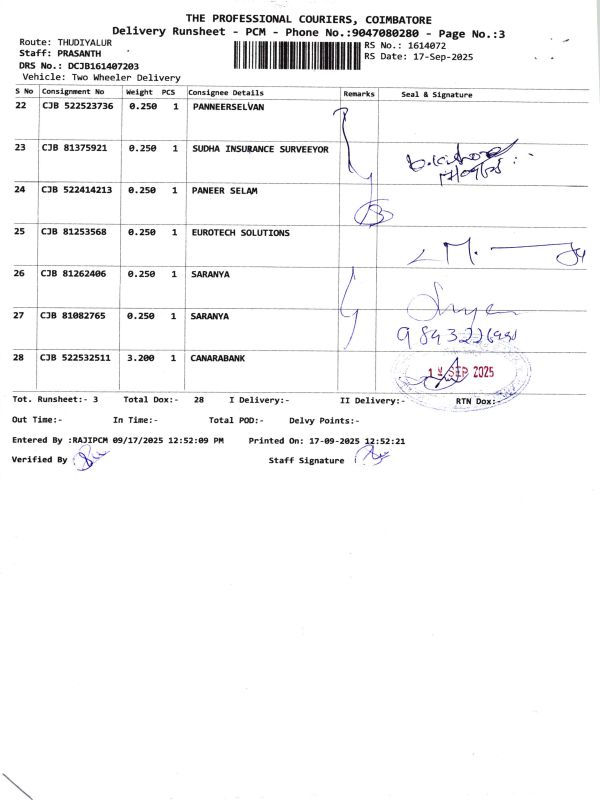 THE PROFESSIONAL COURIERS, COIMBATORE
Delivery Runsheet - PCM - Phone No.:9047080280 - Page No.:3
Route: THUDIYALUR
RS No.: 1614072
Staff: PRASANTH
RS Date: 17-Sep-2025
DRS No.: DCJB161407203
Vehicle: Two Wheeler Delivery
S No Consignment No Weight PCS Consignee Details Remarks Seal & Signature
22 CJB 522523736 0.250 1 PANNEERSELVAN
23 CJB 81375921 0.250 1 SUDHA INSURANCE SURVEEYOR
24 CJB 522414213 0.250 1 PANEER SELAM
25 CJB 81253568 0.250 1 EUROTECH SOLUTIONS
26 CJB 81262406 0.250 1 SARANYA
27 CJB 81082765 0.250 1 SARANYA
28 CJB 522532511 3.200 1 CANARABANK
SEP 2025
Tot. Runsheet:- 3 Total Dox:- 28 I Delivery:- II Delivery:- RTN Dox:-
Out Time:- In Time:- Total POD:- Delvy Points:-
Entered By :RAJIPCM 09/17/2025 12:52:09 PM Printed On: 17-09-2025 12:52:21
Verified By Staff Signature